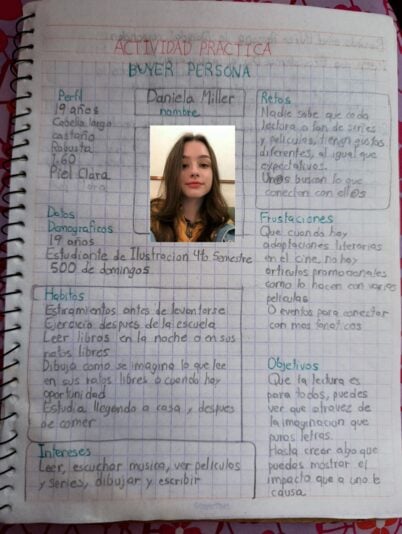 ACTIVIDAD PRACTICA
BUYER PERSONA
Perfil
19 años
Cabello largo
castaño
Robusta
1.60
Piel Clara
Daniela Miller
nombre
Retos
Nadie sabe que cada
lectura o fan de series
y peliculas, tienen gustos
diferentes, al igual que
expectativas.
Un@s buscan lo que
conectan con ell@s
Datos
Demograficos
19 años
Estudiante de Ilustracion 4to Semestre
500 de domingos
Frustaciones
Que cuando hay
adaptaciones literarias
en el cine, no hay
articulos promocionales
como lo hacen con varias
peliculas
O eventos para conectar
con mas fanaticos
Habitos
Estiramientos antes de levantarse
Ejercicio despues de la escuela
Leer libros en la noche o en sus
ratos libres
Dibuja como se imagina lo que lee
en sus ratos libres o cuando hay
oportunidad
Estudia llegando a casa, y despues
de comer
Objetivos
Que la lectura es
para todos, puedes
ver que atravez de
la imaginacion que
puras letras.
Hasta crear algo que
puedas mostrar el
impacto que a uno le
causa
Intereses
Leer, escuchar musica, ver peliculas
y series, dibujar y escribir